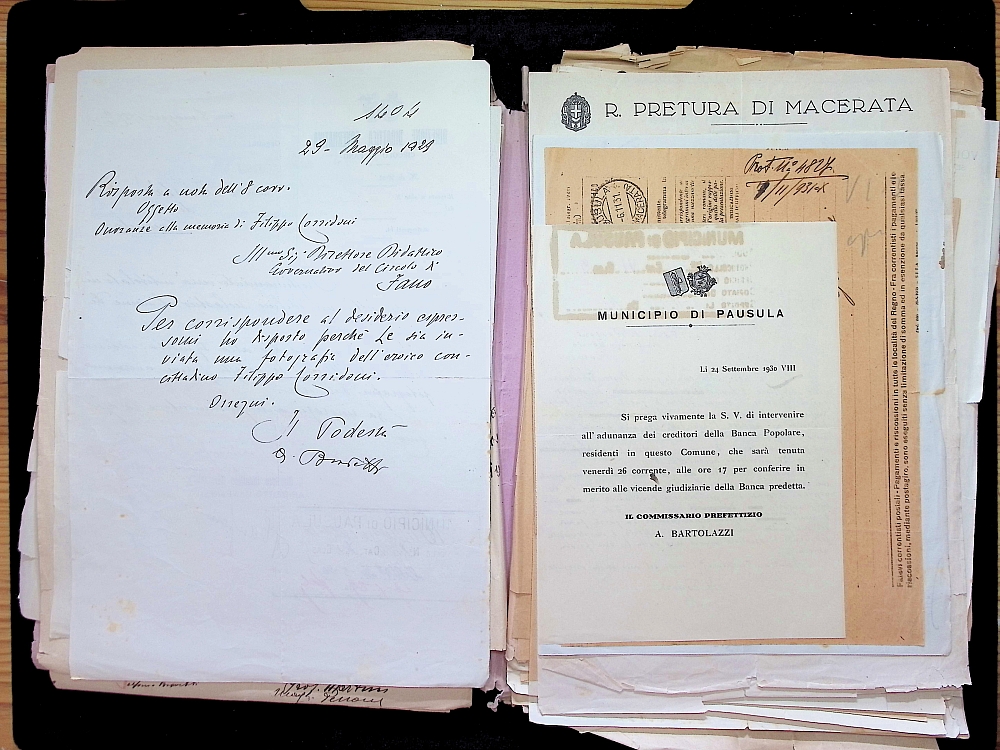 1404
29 - Maggio 1929
Risposta a nota dell'8 corr.
Oggetto
Onoranze alla memoria di Filippo Corridoni
Ill.mo Sig. Direttore Didattico
Governativo del Circolo di
Fano
Per corrispondere al desiderio espres-
somi ho disposto perchè Le sia in-
viata una fotografia dell'eroico con-
cittadino Filippo Corridoni.
Ossequi.
Il Podestà
R. PRETURA DI MACERATA
Prot. N° 4827
MUNICIPIO DI PAUSULA
Li 24 Settembre 1930 VIII
Si prega vivamente la S. V. di intervenire
all'adunanza dei creditori della Banca Popolare,
residenti in questo Comune, che sarà tenuta
venerdì 26 corrente, alle ore 17 per conferire in
merito alle vicende giudiziarie della Banca predetta.
IL COMMISSARIO PREFETTIZIO
A. BARTOLAZZI
Fatevi correntisti postali - Pagamenti e riscossioni in tutte le località del Regno - Fra correntisti i pagamenti e le
riscossioni, mediante postagiro, sono eseguiti senza limitazione di somma ed in esenzione da qualsiasi tassa.